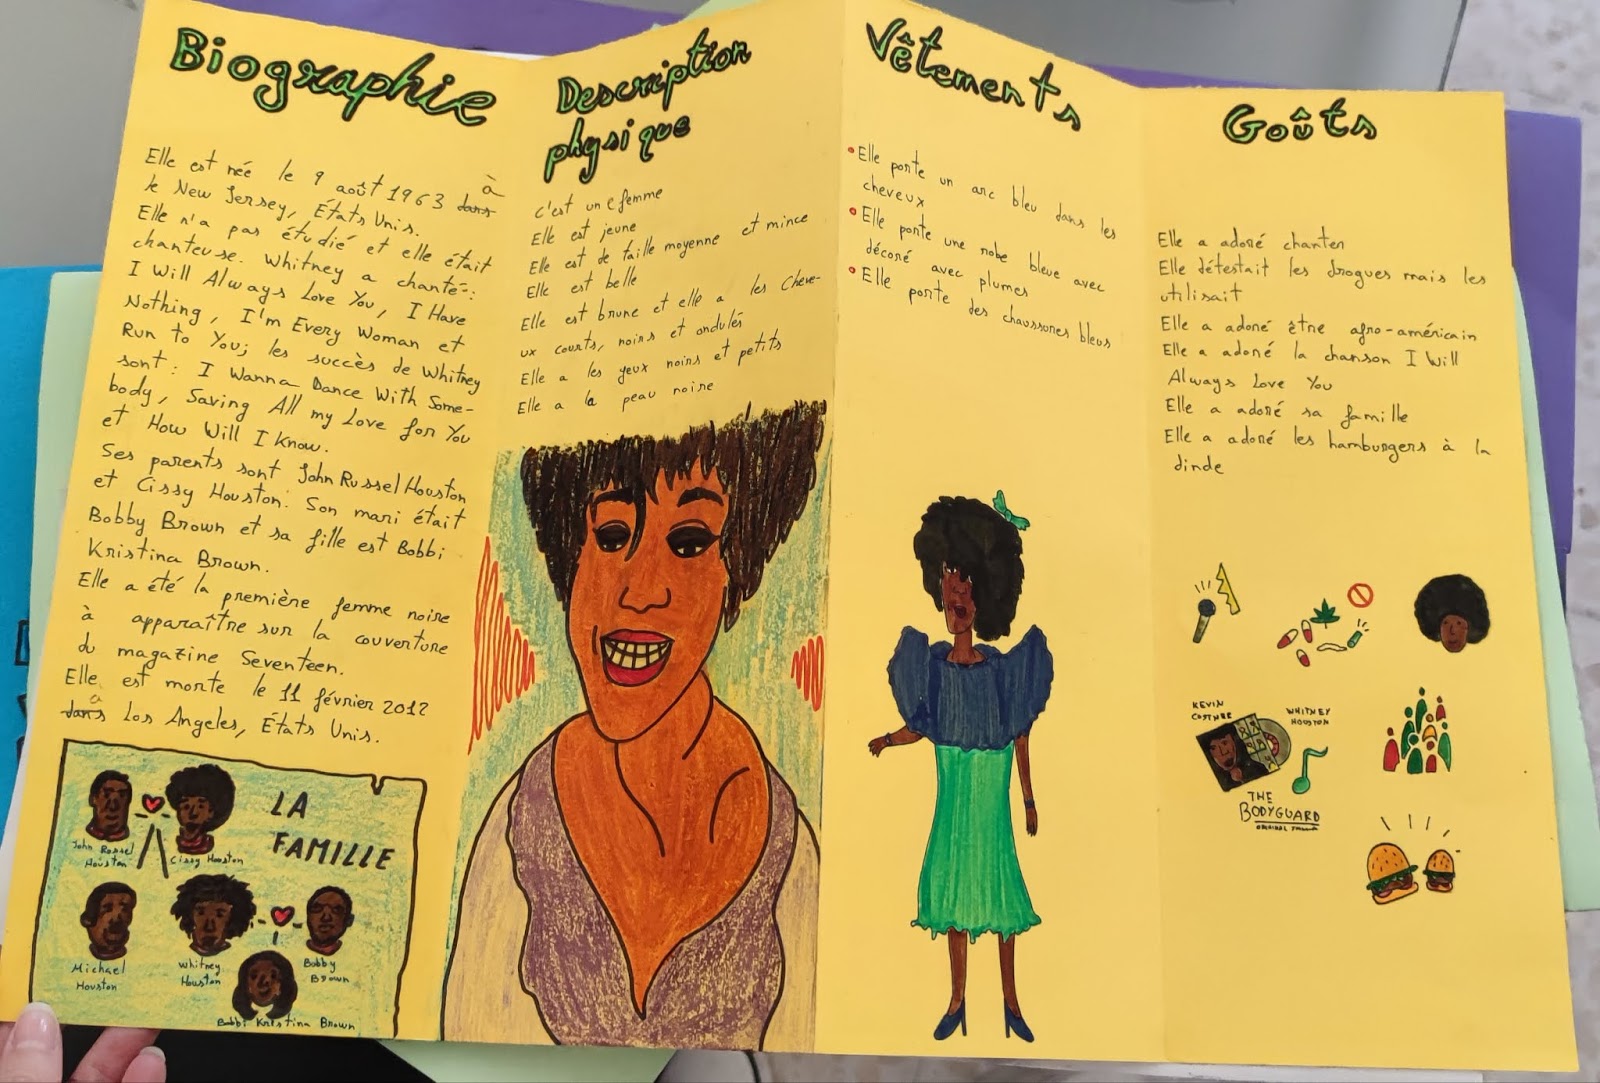 Biographie
Elle est née le 9 août 1963 dans à
le New Jersey, États Unis.
Elle n'a pas étudié et elle était
chanteuse. Whitney a chanté:
I Will Always Love You, I Have
Nothing, I'm Every Woman et
Run to You; les succès de Whitney
sont: I Wanna Dance With Some-
body, Saving All my Love for You
et How Will I Know.
Ses parents sont John Russel Houston
et Cissy Houston. Son mari était
Bobby Brown et sa fille est Bobbi
Kristina Brown.
Elle a été la première femme noire
à apparaître sur la couverture
du magazine Seventeen.
Elle est morte le 11 février 2012
dans à Los Angeles, États Unis.
LA
FAMILLE
John Russel
Houston
Cissy Houston
Michael
Houston
Whitney
Houston
Bobby
Brown
Bobbi Kristina Brown
Description
physique
C'est une femme
Elle est jeune
Elle est de taille moyenne et mince
Elle est belle
Elle est brune et elle a les cheve-
ux courts, noirs et ondulés
Elle a les yeux noirs et petits
Elle a la peau noire
Vêtements
• Elle porte un arc bleu dans les
cheveux
• Elle porte une robe bleue avec
décoré avec plumes
• Elle porte des chaussures bleus
Goûts
Elle a adoré chanter
Elle détestait les drogues mais les
utilisait
Elle a adoré être afro-américain
Elle a adoré la chanson I Will
Always Love You
Elle a adoré sa famille
Elle a adoré les hamburgers à la
dinde
KEVIN
COSTNER
WHITNEY
HOUSTON
THE
BODYGUARD